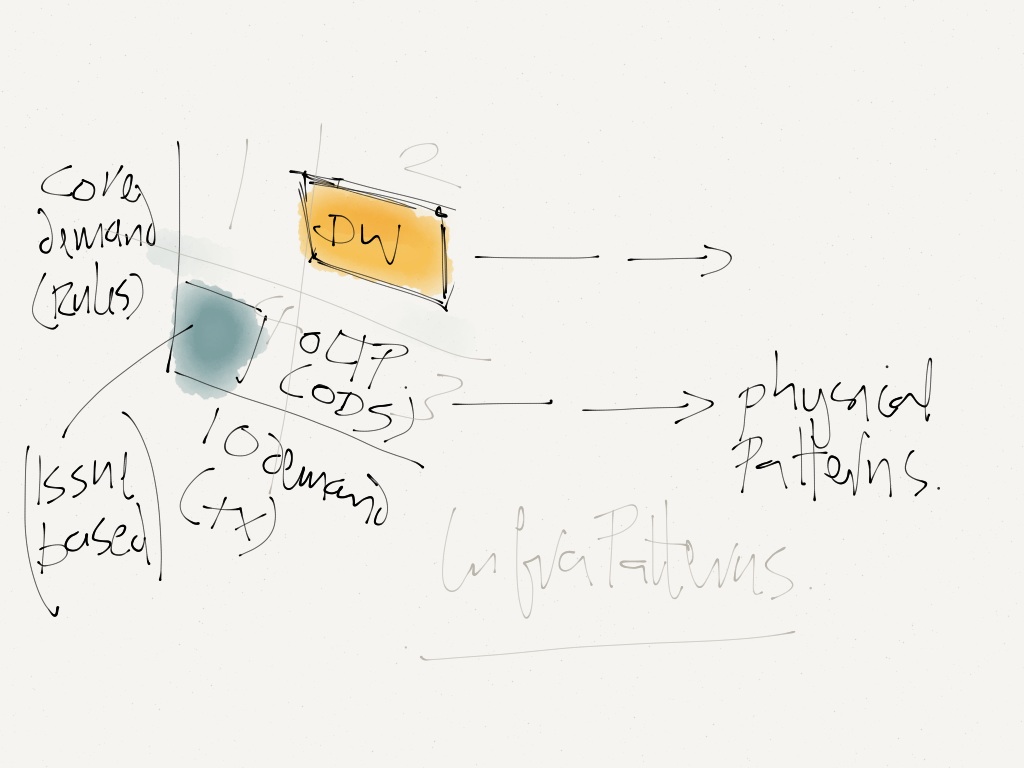 Core
demand
(Rules)
1
2
DW
OLTP
(ODS)
3
IO demand
(TX)
Issue
based
physical
Patterns.
Infra Patterns.